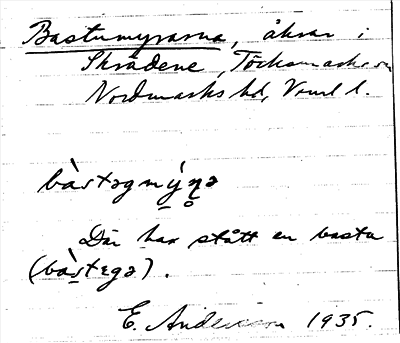 Bastumyrarna, åkrar i
Skrädene, Töcksmarks sn
Nordmarks hd, Vrml l.
bàstəgmýṇə
Där har stått en bastu
(bàstegə).
E. Andersson 1935.